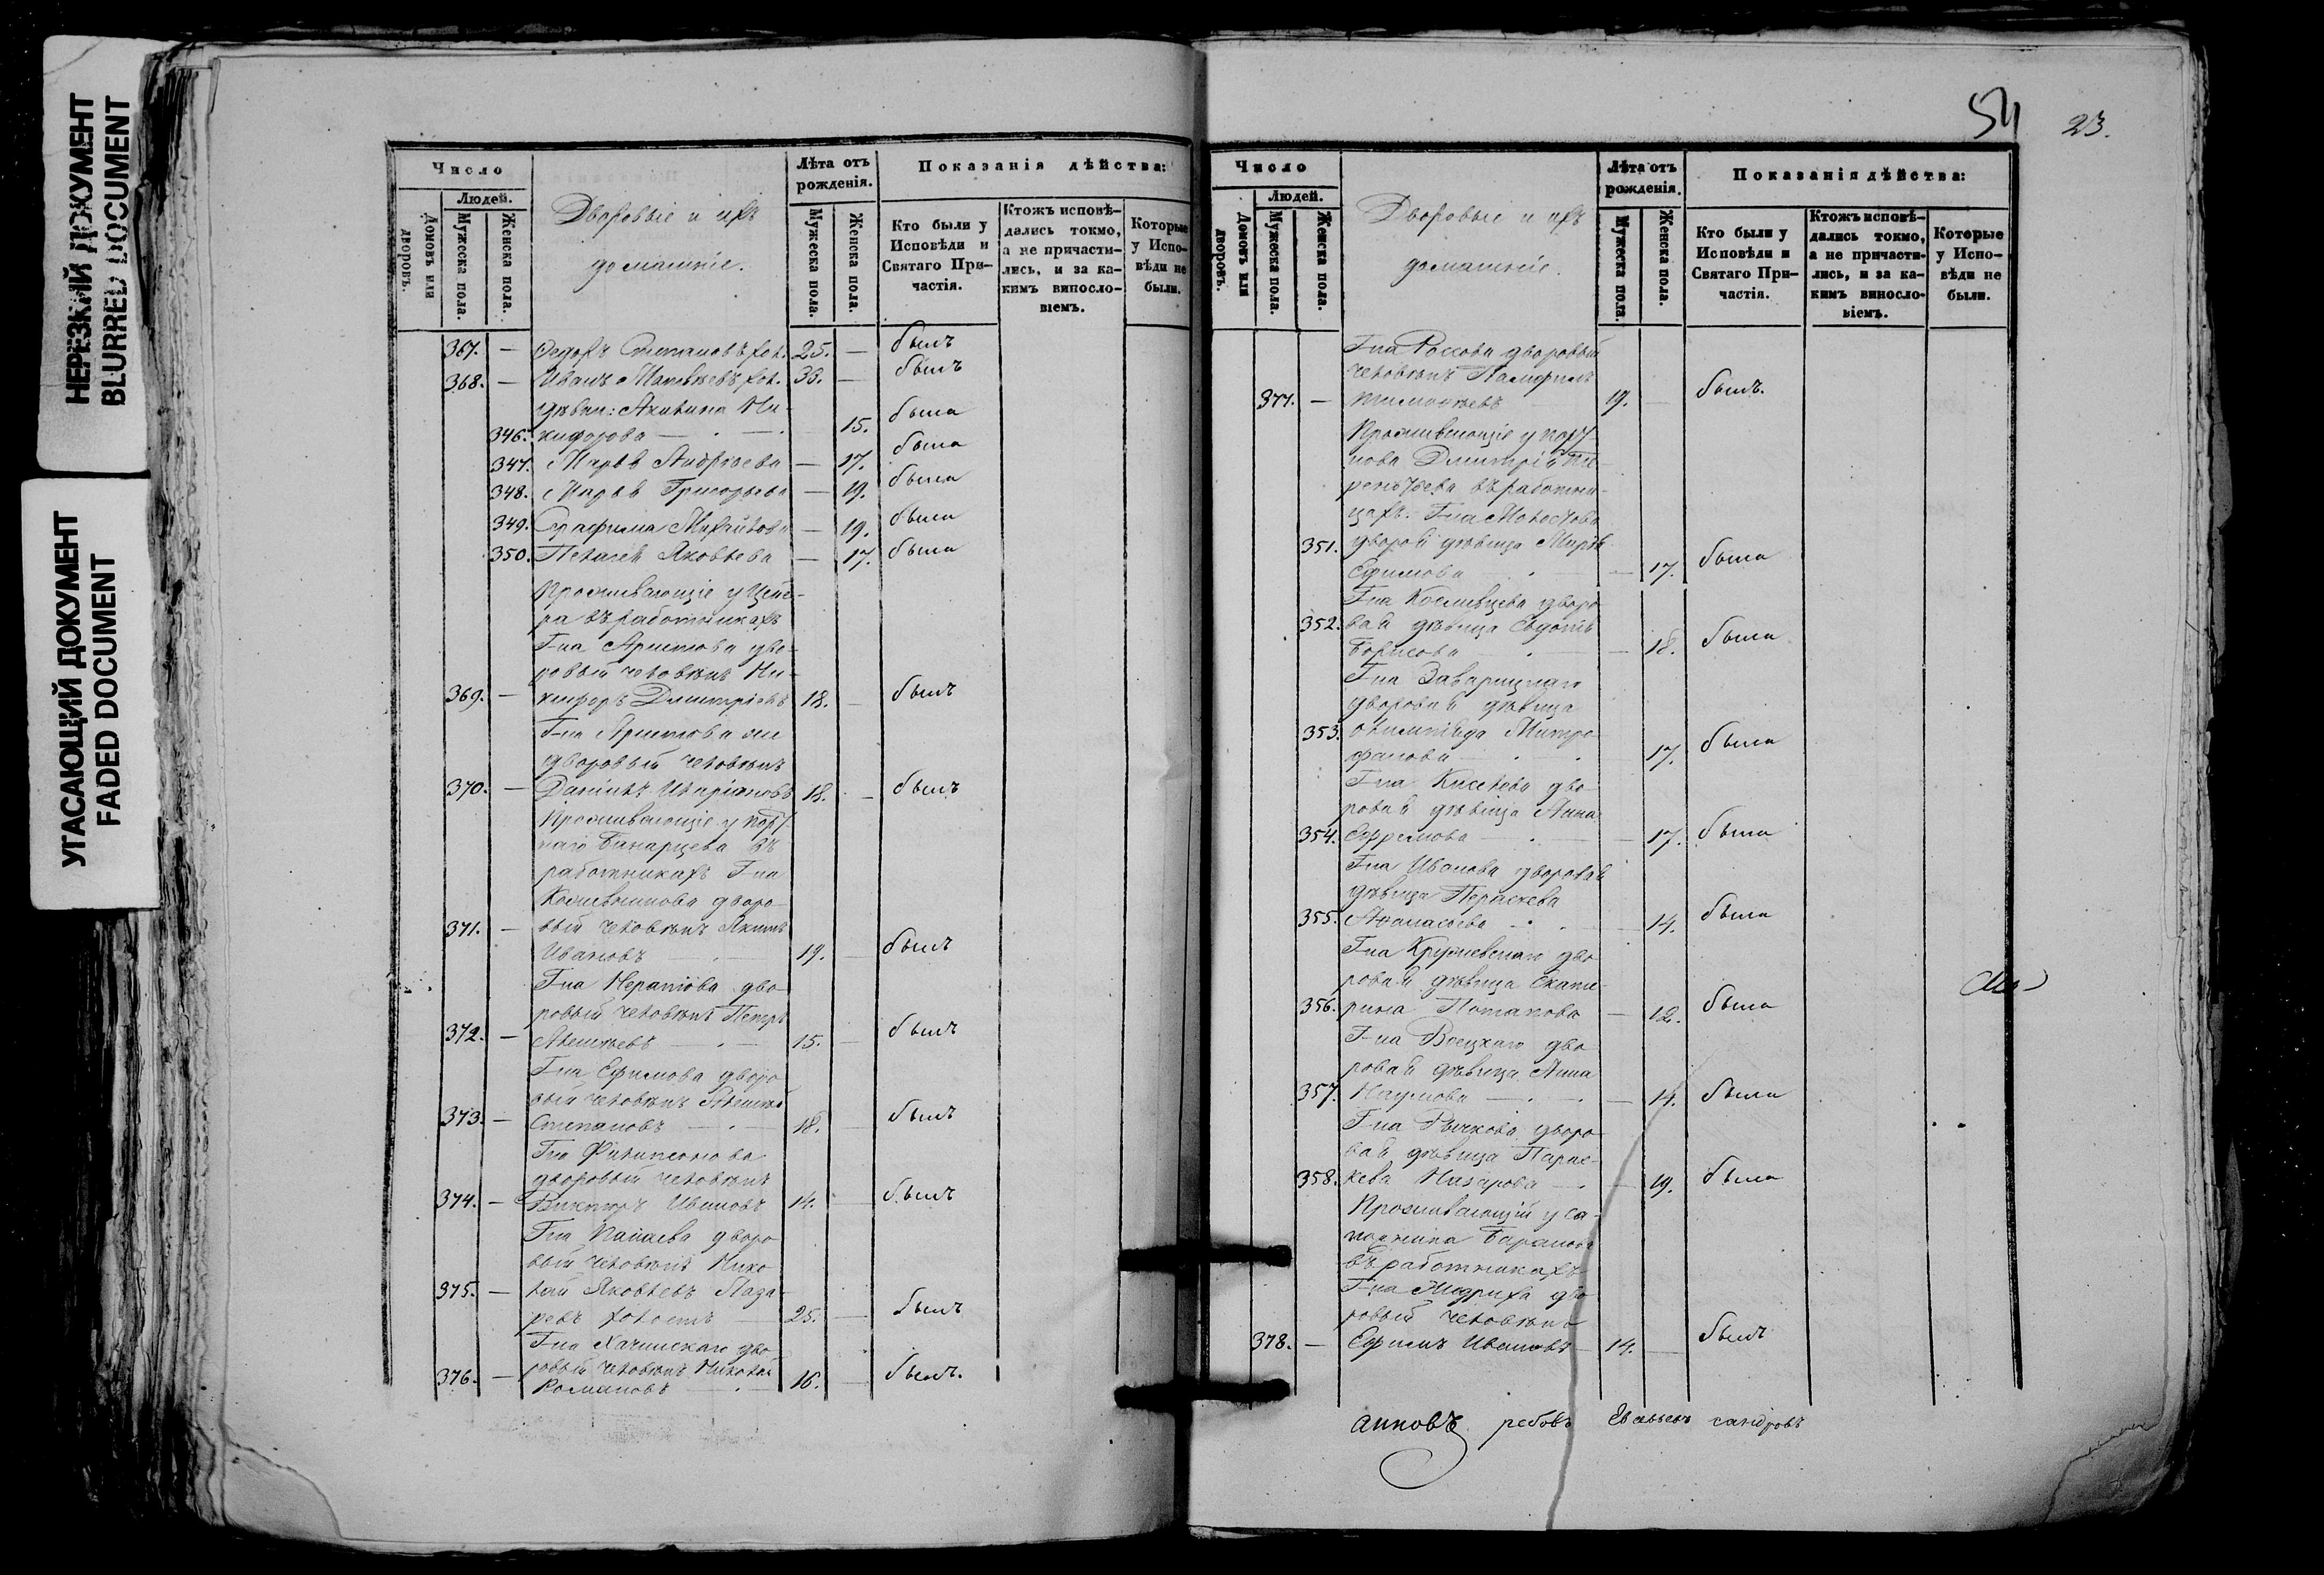 НЕРЕЗКИЙ ДОКУМЕНТ
BLURRED DOCUMENT
УГАСАЮЩИЙ ДОКУМЕНТ
FADED DOCUMENT
Число
Людей.
Домовъ или дворовъ.
Мужеска пола.
Женска пола.
Дворовые и ихъ
домашніе.
Лѣта отъ
рожденія.
Мужеска пола.
Женска пола.
Показанія дѣйства:
Кто были у
Исповѣди и
Святаго При-
частія.
Ктожъ исповѣ-
дались токмо,
а не причасти-
лись, и за ка-
кимъ винословіемъ.
Которые
у Испо-
вѣди не
были.
367. — Федоръ Степановъ хол. 25. — былъ
368. — Иванъ Матвѣевъ хол. 33. — былъ
дѣвиц: Акилина Ни-
346. кифорова — 15. была
347. Марья Андреева — 17. была
348. Марья Григорьева — 19. была
349. Серафима Михайлова — 19. была
350. Пелагея Яковлева — 17. была
Проживающіе у
ра въ работникахъ
Г-на дво-
ровый человѣкъ Ни-
369. — кифоръ Дмитріевъ 18. — былъ
Г-на же
дворовый человѣкъ
370. — Даніилъ 18. — былъ
Проживающіе у
работникахъ Г-на
Кожевникова дворо-
371. — вый человѣкъ Якимъ
Ивановъ — 19. — былъ
Г-на Нератова дво-
ровый человѣкъ Петръ
372. — Алексѣевъ — 15. — былъ
Г-на Ефимова дворо-
вый человѣкъ Алексѣй
373. — Степановъ — 18. — былъ
Г-на Филипсонова
дворовый человѣкъ
374. — Викторъ Ивановъ 14. — былъ
Г-на Панаева дворо-
вый человѣкъ Нико-
375. — лай Яковлевъ Лаза-
ревъ холостъ — 25. — былъ
Г-на дво-
ровый человѣкъ Николай
376. — Романовъ — 16. — былъ.
54 23.
Число
Людей.
Домовъ или дворовъ.
Мужеска пола.
Женска пола.
Дворовые и ихъ
домашніе.
Лѣта отъ
рожденія.
Мужеска пола.
Женска пола.
Показанія дѣйства:
Кто были у
Исповѣди и
Святаго При-
частія.
Ктожъ исповѣ-
дались токмо,
а не причасти-
лись, и за ка-
кимъ винословіемъ.
Которые
у Испо-
вѣди не
были.
Г-на дворовый
человѣкъ Памфилъ
377. — Тимофеевъ 19. — былъ.
Проживающіе у
Дмитрія Те-
рентьева въ работни-
цахъ. Г-на
351. дворов. дѣвица Марья
Ефимова — 17. была
Г-на дворо-
352. вая дѣвица Евдокія
Борисова — 18. была
Г-на Заварицкаго
дворовая дѣвица
353. Олимпіада Митро-
фанова — 17. была
Г-на Киселева дво-
ровая дѣвица Анна
354. Ефремова — 17. была
Г-на Иванова дворовая
дѣвица Параскева
355. Афанасьева — 14. была
Г-на дво-
ровая дѣвица Екате-
356. рина Потапова — 12. была
Г-на дво-
ровая дѣвица Анна
357. Наумова — 14. была
Г-на Рычкова дворо-
вая дѣвица Парас-
358. кева Назарова — 19. была
Проживающій у са-
пожника Баранова
въ работникахъ
Г-на дво-
ровый человѣкъ
378. — Ефимъ Ивановъ — 14. — былъ